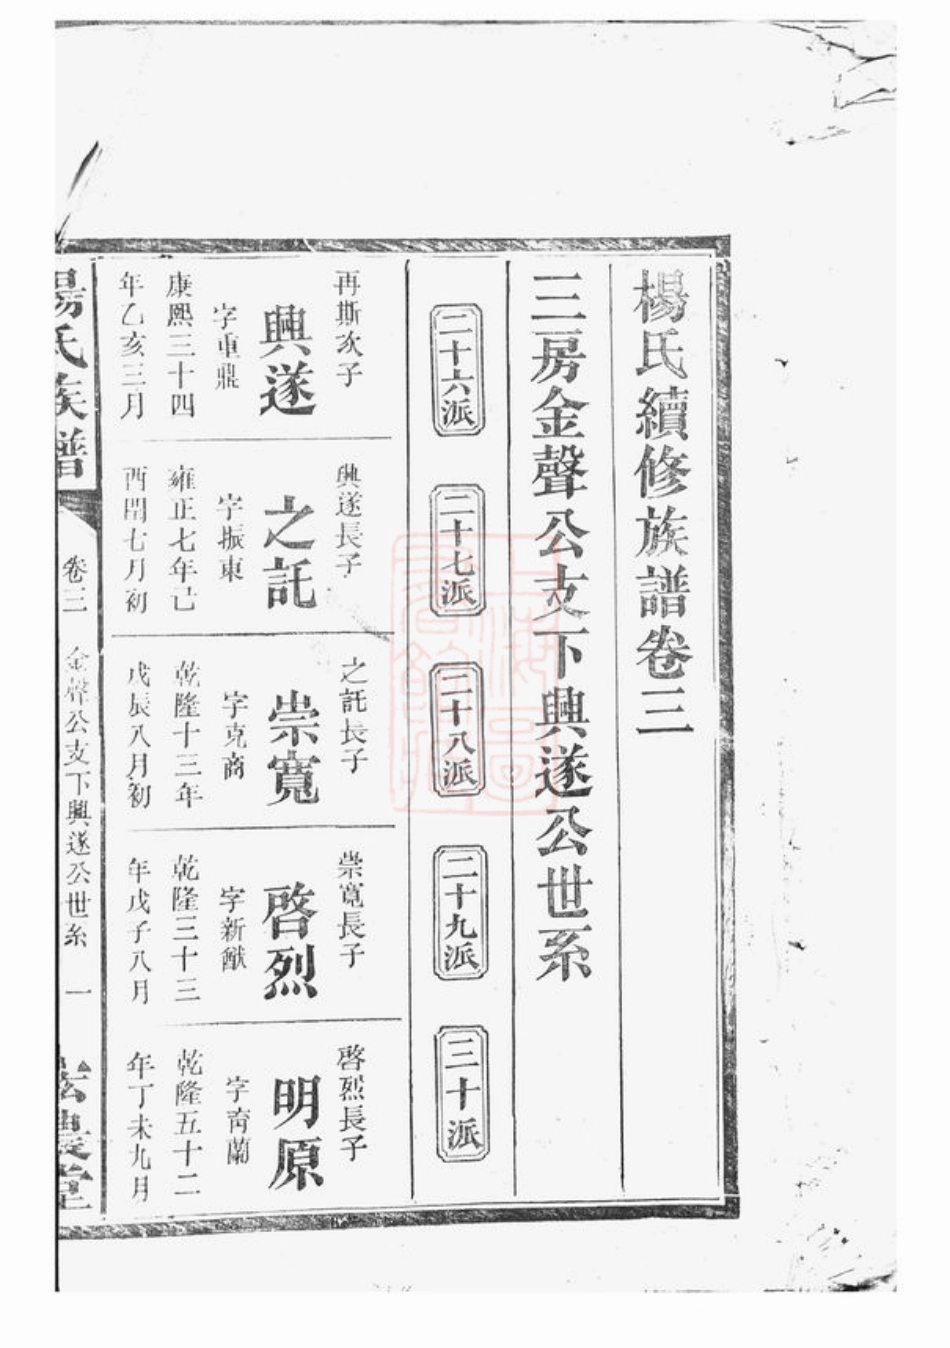 楊氏續修族譜卷三
三房金聲公支下興遂公世系
二十六派
二十七派
二十八派
二十九派
三十派
再斯次子
興遂
字重鼎
康熙三十四
年乙亥三月
興遂長子
之託
字振東
雍正七年己
酉閏七月初
之託長子
崇寬
字克商
乾隆十三年
戊辰八月初
崇寬長子
啓烈
字新猷
乾隆三十三
年戊子八月
啓烈長子
明原
字育蘭
乾隆五十二
年丁未九月
楊氏族譜
卷三
金聲公支下興遂公世系
一
農堂